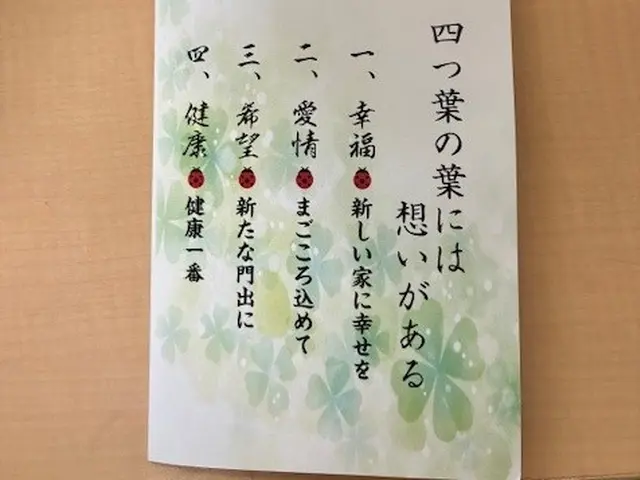 四つ葉の葉には
想いがある
一、幸福 新しい家に幸せを
二、愛情 まごころ込めて
三、希望 新たな門出に
四、健康 健康一番